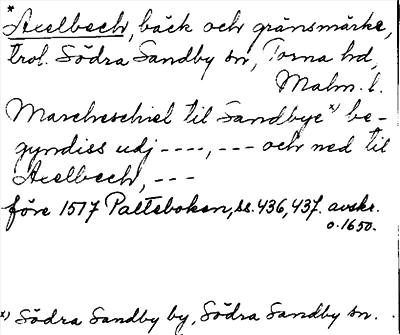 * Axelbech, bäck och gränsmärke,
trol. Södra Sandby sn, Torna hd,
Malm. l.
Marcheschiel til Sandbye x) be-
gyndiss udj ----, --- och ned til
Axelbech, ---
före 1517 Palteboken, ss. 436, 437. avskr.
o. 1650.
x) Södra Sandby by, Södra Sandby sn.